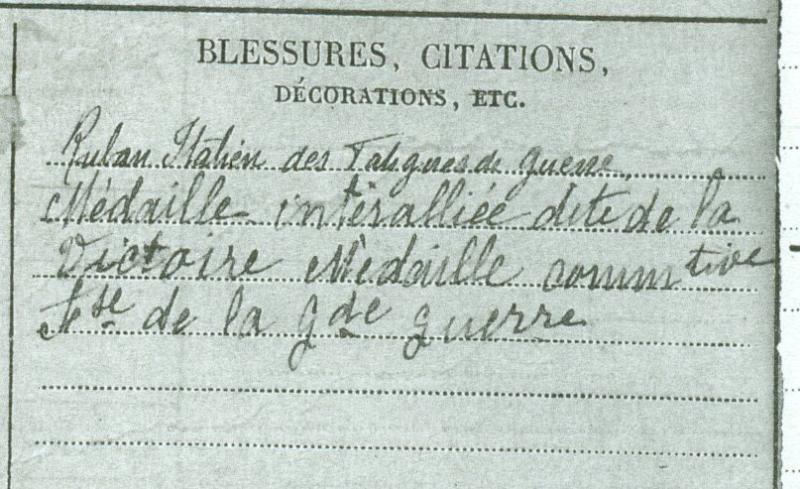 BLESSURES, CITATIONS,
DÉCORATIONS, ETC.
Ruban Italien des Fatigues de guerre.
Médaille interalliée dite de la
Victoire Médaille commtive
fse de la gde guerre